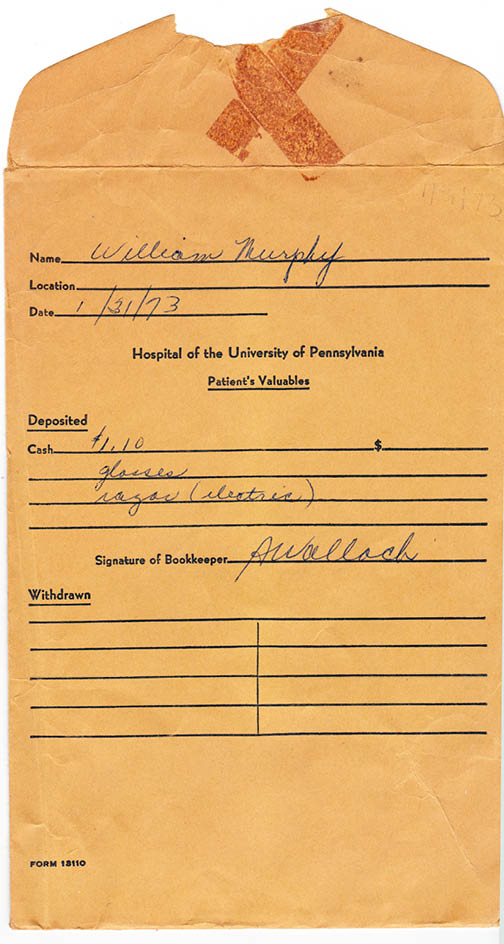 Name William Murphy
Location
Date 1/31/73
Hospital of the University of Pennsylvania
Patient's Valuables
Deposited
Cash $1.10 $
glasses
razor (electric)
Signature of Bookkeeper AWallach
Withdrawn
FORM 13110